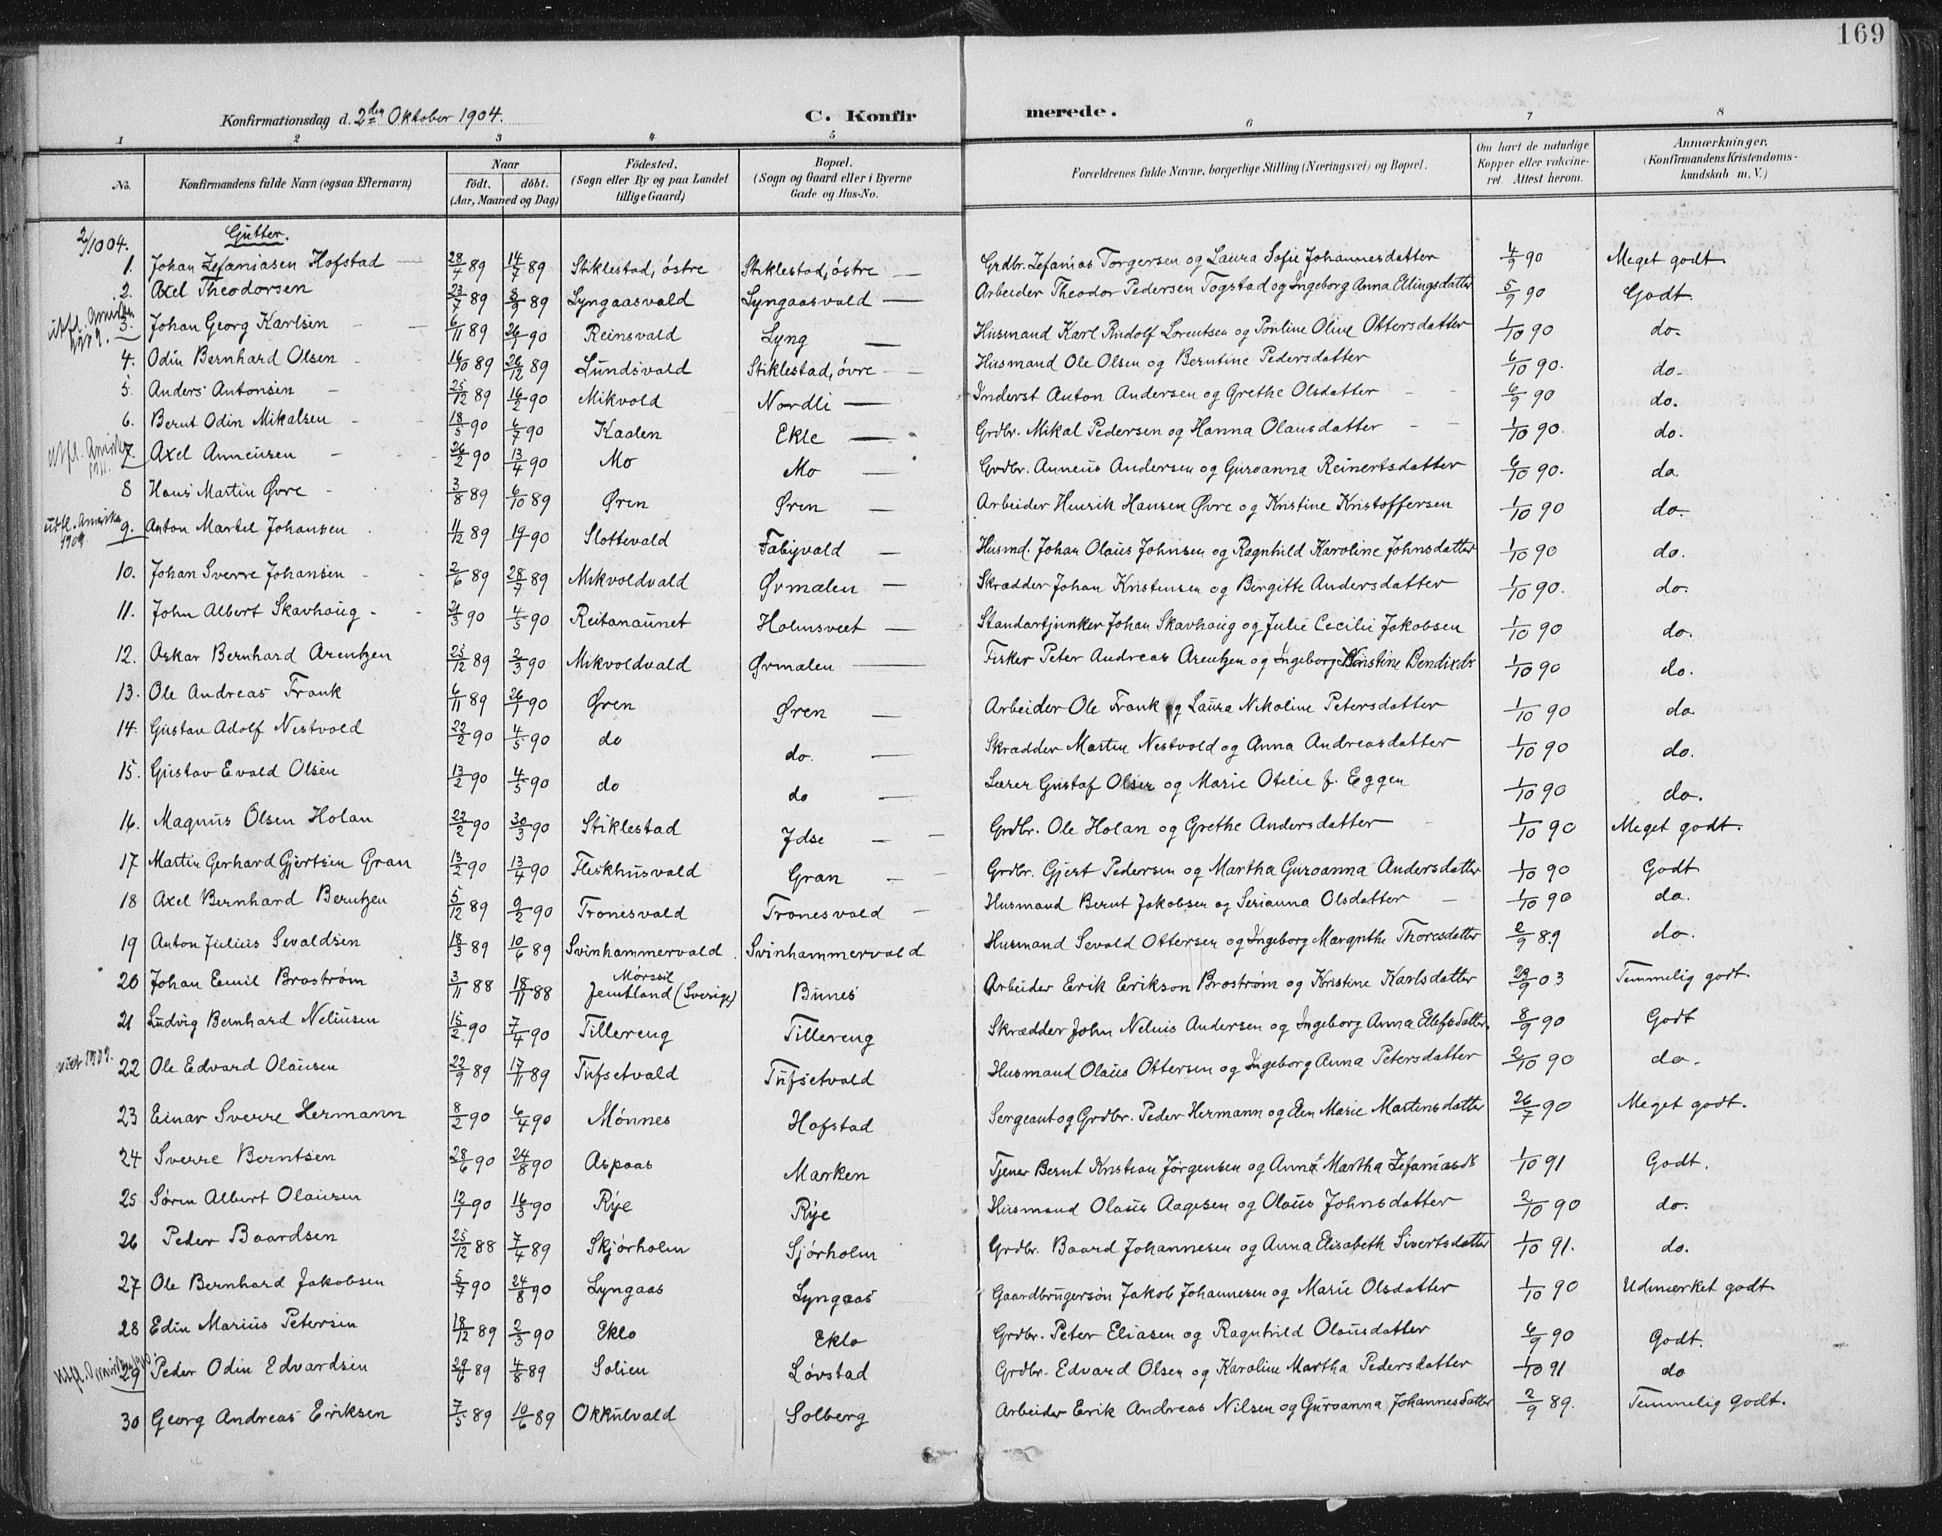 169
Konfirmationsdag d. 2den Oktober 1904. C. Konfirmerede.
1 2 3 4 5 6 7 8
No. Konfirmandens fulde Navn (ogsaa Efternavn) Naar født. døbt. (Aar, Maaned og Dag) Fødested. (Sogn eller By og paa Landet tillige Gaard) Bopæl. (Sogn og Gaard eller i Byerne Gade og Hus-No. Forældrenes fulde Navne, borgerlige Stilling (Næringsvei) og Bopæl. Om havt de naturlige Kopper eller vakcineret. Attest herom. Anmærkninger. (Konfirmandens Kristendomskundskab m. V.)
2/10 04. Gutter.
1. Johan Zefaniasen Hofstad 28/4 89 14/7 89 Stiklestad, østre Stiklestad, østre Grdbr. Zefanias Torgersen og Laura Sofie Johannesdatter 4/9 90 Meget godt
2. Axel Theodorsen 23/7 89 8/9 89 Lyngaasvald Lyngaasvald Arbeider Theodor Pedersen Togstad og Ingeborg Anna Ellingsdatter 5/9 90 Godt.
3. Johan Georg Karlsen 6/11 89 26/1 90 Reinsvald Lyng Husmand Karl Rudolf Lorentsen og Pauline Oline Ottersdatter 1/10 90 do.
4. Odin Bernhard Olsen 16/10 89 26/12 89 Lundsvald Stiklestad, øvre Husmand Ole Olsen og Berntine Pedersdatter 6/10 90. do.
5. Anders Antonsen 25/12 89 16/2 90 Mikvold Nordli Inderst Anton Andersen og Grethe Olsdatter 6/9 90 do.
6. Bernt Odin Mikalsen 18/5 90 6/7 90 Kaalen Ekle Grdbr. Mikal Pedersen og Hanna Olausdatter 1/10 90. do.
utfl. Amerika 1911. 7. Axel Anneusen 26/2 90 13/4 90 Mo Mo Grdbr. Anneus Andersen og Guroanna Reinertsdatter 6/10 90. do
8 Hans Martin Øvre 3/8 89 6/10 89 Øren Øren Arbeider Henrik Hansen Øvre og Kristine Kristoffersen 1/10 90 do.
utfl. Amerika 1909 9. Anton Martel Johansen 11/12 89 19/1 90 Slottevald Fabyvald Husmd. Johan Olaus Johnsen og Ragnhild Karoline Johnsdatter 1/10 90 do.
10. Johan Sverre Johansen 2/6 89 28/7 89 Mikvoldvald Ørmælen Skrædder Johan Kristensen og Birgitte Andersdatter 1/10 90. do.
11. John Albert Skavhaug 21/3 90 4/5 90 Reitanaunet Holmsveet Standartjunker Johan Skavhaug og Julie Cecilie Jakobsen 1/10 90 do.
12. Oskar Bernhard Arentzen 25/12 89 2/3 90 Mikvoldvald Ørmælen Fisker Peter Andreas Arentzen og Ingeborg Kristine Bendixdr 1/10 90 do.
13. Ole Andreas Frank 6/11 89 26/1 90 Øren Øren Arbeider Ole Frank og Laura Nikoline Petersdatter 1/10 90 do.
14. Gustav Adolf Nestvold 22/2 90 4/5 90 do do. Skrædder Martin Nestvold og Anna Andreasdatter 1/10 90 do.
15. Gustav Evald Olsen 13/2 90 4/5 90 do do Lærer Gustaf Olsen og Marie Otelie f. Eggen 1/10 90 do.
16. Magnus Olsen Holan 22/2 90 30/3 90 Stiklestad Ydse Grdbr. Ole Holan og Grethe Andersdatter 1/10 90 Meget godt.
17 Martin Gerhard Gjertsen Gran 13/2 90 13/4 90 Fleskhusvald Gran Grdbr. Gjert Pedersen og Martha Guroanna Andersdatter 1/10 90 Godt
18 Axel Bernhard Berntzen 5/12 89 9/2 90 Tronesvald Tronesvald Husmand Bernt Jakobsen og Serianna Olsdatter 1/10 90 do.
19 Anton Julius Sevaldsen 18/3 89 10/6 89 Svinhammervald Svinhammervald Husmand Sevald Ottersen og Ingeborg Margrethe Thoresdatter 2/9 89 do.
20 Johan Emil Broström 3/11 88 18/11 88 Mörssil Jemtland (Sverige) Bunes Arbeider Erik Erikson Broström og Kristine Karlsdatter 29/9 03 Temmelig godt.
21 Ludvig Bernhard Neliusen 15/2 90 7/4 90 Tillereng Tillereng Skrædder John Nelius Andersen og Ingeborg Anna Ellefsdatter. 8/9 90 Godt
1909. 22 Ole Edvard Olausen 22/9 89 17/11 89 Tufsetvald Tufsetvald Husmand Olaus Ottersen og Ingeborg Anna Petersdatter 2/10 90 do.
23 Einar Sverre Hermann 8/2 90 6/4 90 Mønnes Hofstad Sergeant og Grdbr. Peder Hermann og Elen Marie Martinsdatter 26/7 90 Meget godt.
24 Sverre Berntsen 28/6 90 24/8 90 Aspaas Marken Tjener Bernt Kristian Jørgensen og Anne Martha Zefaniasdt 1/10 91 Godt.
25 Søren Albert Olausen 12/1 90 16/3 90 Rye Rye Husmand Olaus Aagesen og Olaus Johnsdatter 2/10 90 do.
26 Peder Baardsen 25/12 88 7/4 89 Skjørholm Sjørholm Grdbr. Baard Johannesen og Anna Elisabeth Sivertsdatter 1/10 91. do.
27 Ole Bernhard Jakobsen 5/7 90 24/8 90 Lyngaas Lyngaas Gaardbrugersøn Jakob Johannesen og Marie Olsdatter 1/10 90 Udmerket godt.
28 Edin Marius Petersen 18/12 89 2/3 90 Eklo Eklo Grdbr. Peter Eliasen og Ragnhild Olausdatter 6/9 90 Godt.
29 Peder Odin Edvardsen 29/6 89 4/8 89 Solien Løvstad Grdbr. Edvard Olsen og Karoline Martha Pedersdatter 1/10 91 do
30 Georg Andreas Eriksen 7/5 89 10/6 89 Okkulvald Solberg Arbeider Erik Andreas Nilsen og Guroanna Johannesdatter 2/9 89. Temmelig godt.